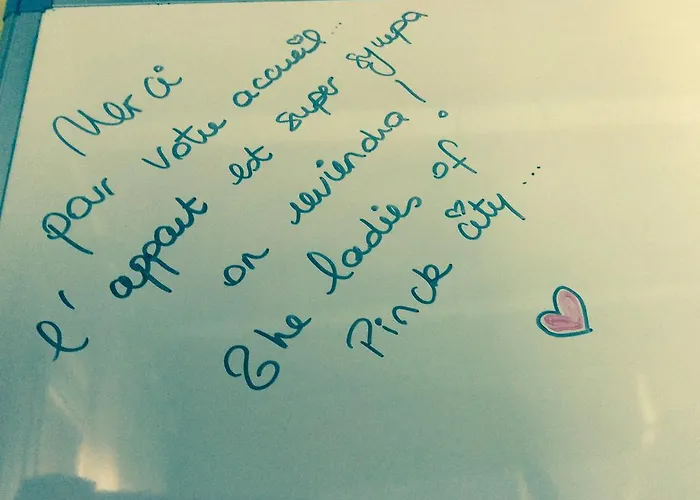 Merci
pour votre accueil...
l'appart est super sympa
on reviendra!
The ladies of
Pinck city...